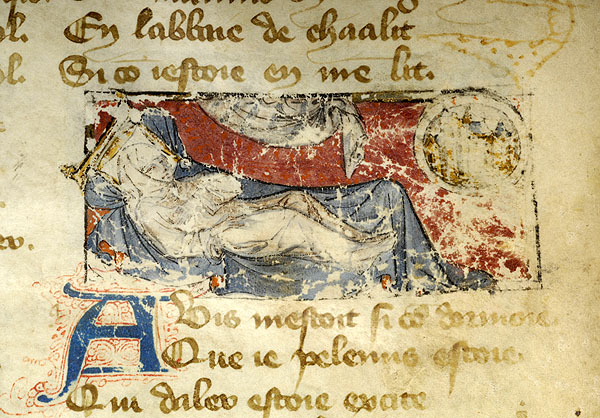 En labbaie de chaalit
Si cō iestoie en me lit.
AVis mestoit si cō dormoie.
Que ie pelerins estoie
Qui daler estoie excite